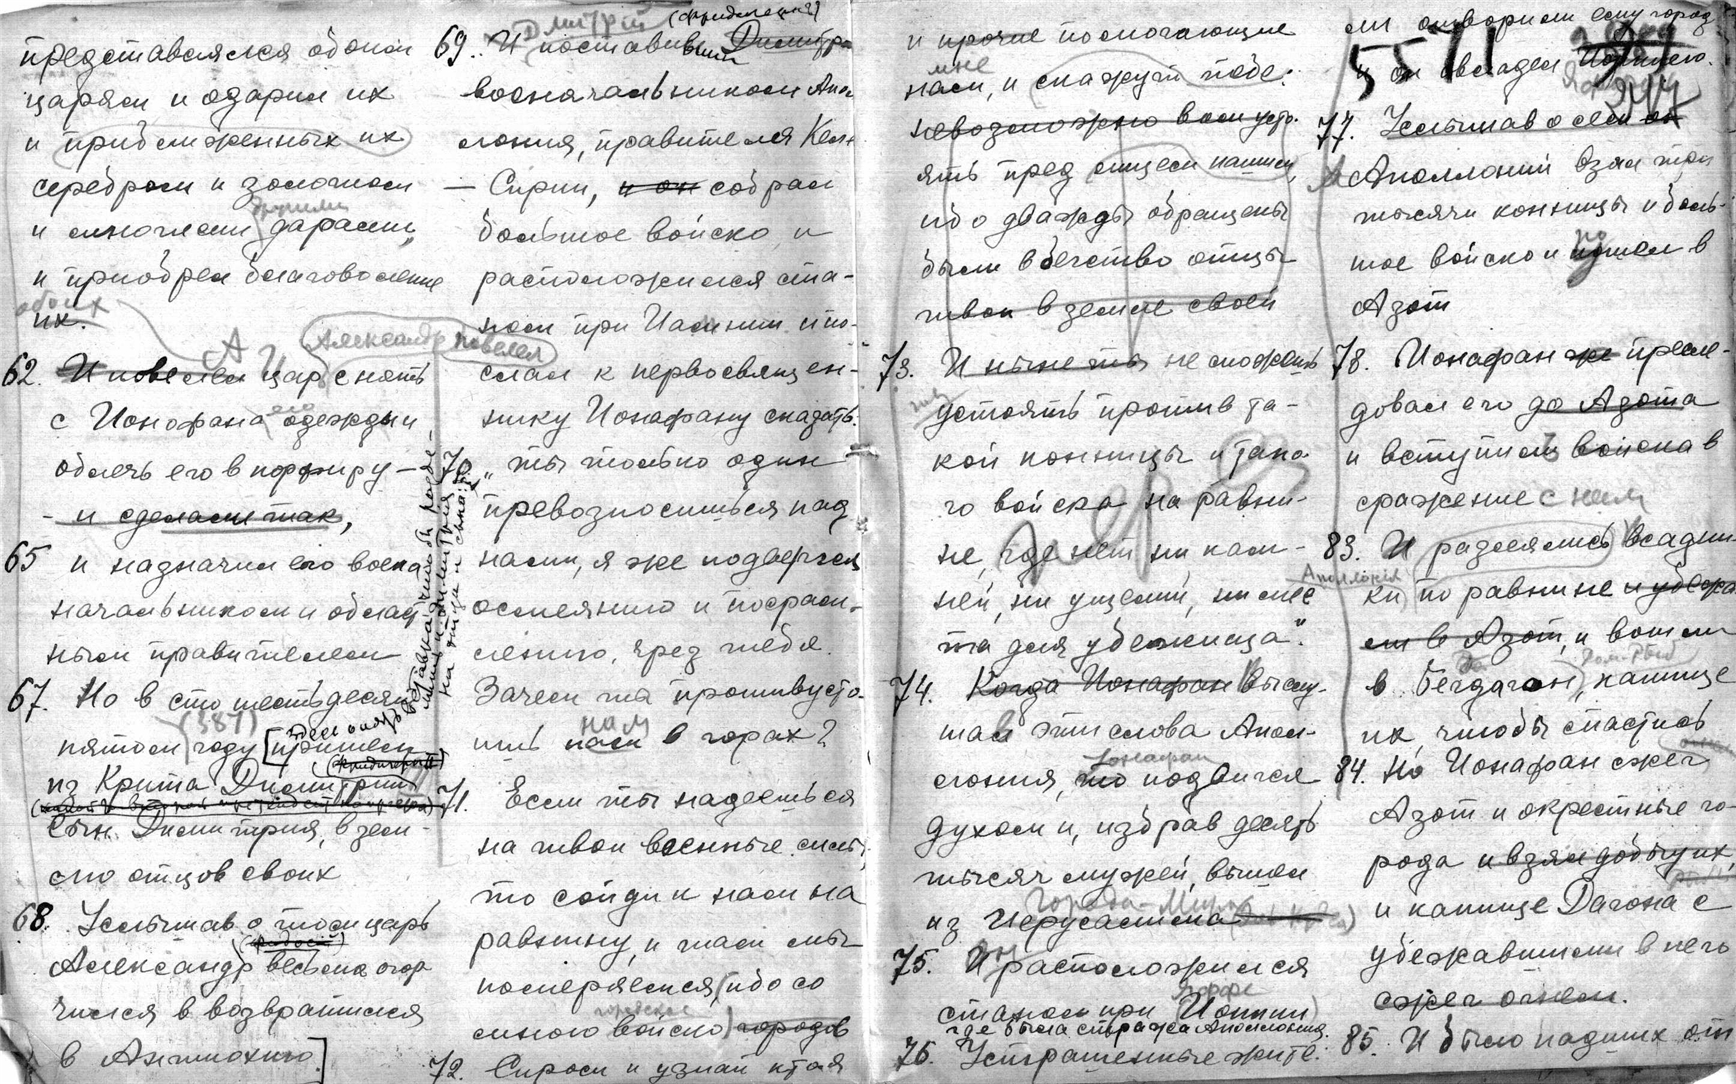 представлялся обоим
царям и одарил их
и приближенных их
серебром и золотом
другими
и многими дарами,
и приобрел благоволение
обоих
их.
62. И повелел царь снять
с Ионафана его одежды и
облечь его в порфиру —
— и сделали так,
65 и назначил его воена
чальником и област
ным правителем
67. Но в сто шестьдесят
(387)
пятом году [пришел
из Крита Димитрий
сын Димитрия, в зем-
лю отцов своих
68. Услышав о том царь
Александр весьма огор
чился и возвратился
в Антиохию]
Дмитрий
69. И поставив Димитрий
военачальником Апол
лония, правителя Келе
— Сирии, и он собрал
большое войско и
расположился ста-
ном при Иамнии и по-
Александр повелел
слал к первосвящен-
нику Ионафану сказать:
70. „ты только один
превозносишься над
нами, я же подвергся
осмеянию и посрам-
лению чрез тебя.
Зачем ты противусто
нам
ишь нам в горах?
71. Если ты надеешься
на твои военные силы,
то сойди к нам на
равнину, и там мы
померяемся, (ибо со
городское
мною войско) городов
72. Спроси и узнай кто я
и прочие помогающие
мне
нам, и скажут тебе:
невозможно вам усто-
ять пред лицем нашим,
ибо дважды обращены
были в бегство отцы
твои в земле своей
73. И ныне ты не можешь
устоять против та-
кой конницы и тако
го войска на равни-
не, где нет ни кам-
ней, ни ущелий, ни мес
та для убежища".
74. Когда Ионафан выслу-
шав эти слова Апол-
Ионафан
лония, то подвигся
духом и, избрав десять
тысяч мужей, вышел
Города-Мира
из Иерусалима
75. И расположился
Яффе
станом при Иоппии
где была стража Аполлония.
76. Устрашенные жите-
ли отворили ему город
5571
и он овладел Иоппиею.
77. Услышав о сем он
Аполлоний взял три
тысячи конницы и боль-
шое войско и пошел в
Азот
78. Ионафан же пресле-
довал его до Азота
и вступили войска в
сражение с ним
83. И рассеялись всадни
Аполлония
ки по равнине и убежа
ли в Азот, и вошли
Дом-Рыб
в Бетдагон, капище
их, чтобы спастись
84. Но Ионафан сжег
Азот и окрестные го-
рода и взял добычу их,
и капище Дагона с
убежавшими в него
сжег огнем.
85. И было падших от